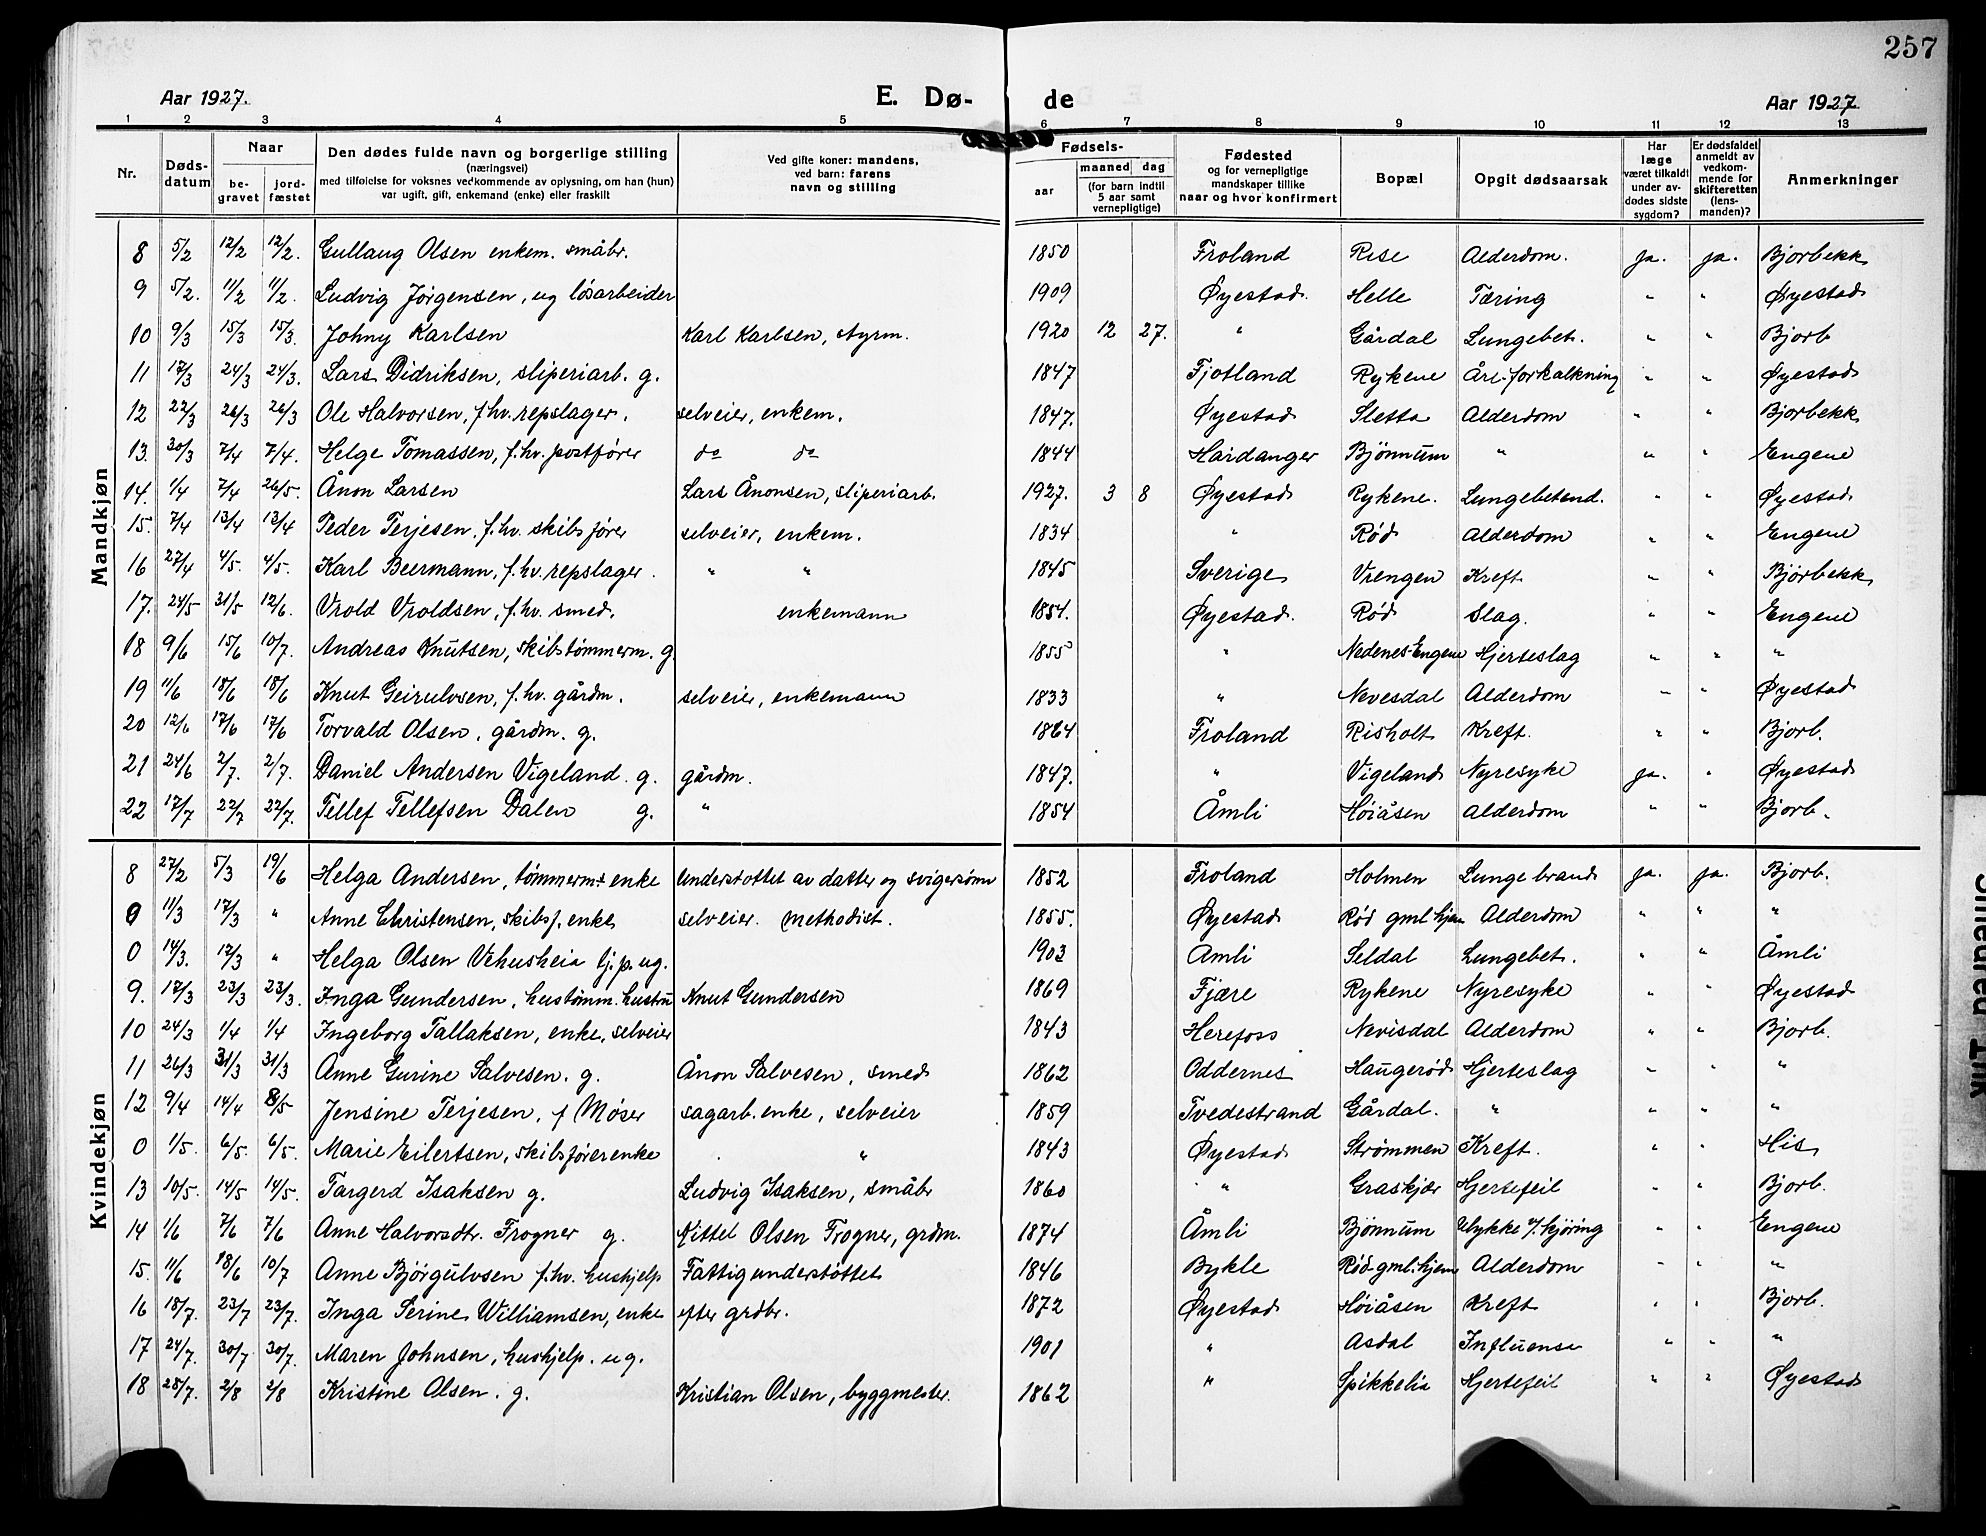 257
Aar 1927. E. Dø- de Aar 1927.
1 2 3 4 5 6 7 8 9 10 11 12 13
Nr. Døds-datum Naar be-gravet jord-fæstet Den dødes fulde navn og borgerlige stilling (næringsvei) med tilføielse for voksnes vedkommende av oplysning, om han (hun) var ugift, gift, enkemand (enke) eller fraskilt Ved gifte koner: mandens, ved barn: farens navn og stilling Fødsels- aar maaned dag (for barn indtil 5 aar samt vernepligtige) Fødested og for vernepligtige mandskaper tillike naar og hvor konfirmert Bopæl Opgit dødsaarsak Har læge været tilkaldt under av-dødes sidste sygdom? Er dødsfaldet anmeldt av vedkom-mende for skifteretten (lens-manden)? Anmerkninger
Mandkjøn
8 5/2 12/2 12/2. Gullaug Olsen enkem. småbr. 1850 Froland Rise Alderdom. ja. ja. Bjorbekk
9 5/2. 11/2 11/2. Ludvig Jørgensen, ug løsarbeider 1909 Øyestad. Helle Tæring " " Øyestad
10 9/3 15/3 15/3. Johny Karlsen Karl Karlsen, styrm. 1920 12 27. " Gårdal Lungebet. " " Bjorb
11 17/3 24/3 24/3. Lars Didriksen, sliperiarb. g. 1847 Fjotland Rykene Åre-forkalkning " " Øyestad
12 22/3 26/3 26/3 Ole Halvorsen, f.hv. repslager. selveier, enkem. 1847. Øyestad Sletta Alderdom " " Bjorbekk
13. 30/3 7/4 7/4. Helge Tomassen, f.hv. postfører do do 1844 Hardanger Bjönnum " " " Engene
14. 1/4 7/4 26/5. Ånon Larsen Lars Ånonsen, sliperiarb. 1927. 3 8 Øyestad Rykene. Lungebetend. " " Øyestad
15. 7/4 13/4 13/4 Peder Terjesen, f.hv. skibsfører selveier, enkem. 1834 " Rød Alderdom " " Engene
16 27/4 4/5. 4/5. Karl Beermann, f.hv. repslager. " " 1845 Sverige Vrengen Kreft " " Bjørbekk
17. 24/5 31/5 12/6. Vrold Vroldsen, f.hv. smed. enkemann 1854. Øyestad. Rød Slag. " " Engene
18 9/6 15/6 10/7. Andreas Knutsen, skibstømmerm. g. 1855 " Nedenes-Engene Hjerteslag " " "
19 11/6 18/6 18/6 Knut Geirulvsen, f.hv. gårdm. selveier, enkemann 1833 " Nevesdal Alderdom " " Øyestad
20 12/6 17/6 17/6 Torvald Olsen, gårdm. g. 1864 Froland Risholt Kreft. " " Bjorb.
21 24/6 2/7. 2/7. Daniel Andersen Vigeland. g. gårdm. 1847. " Vigeland Nyresyke ja. " Øyestad
22 17/7 22/7 22/7. Tellef Tellefsen Dalen g. " 1854 Åmli Høiåsen Alderdom " " Bjorb.
Kvindekjøn
8 27/2 5/3 19/6 Helga Andersen, tømmerms enke Understøttet av datter og svigersønn 1852 Froland Holmen Lungebrand ja. ja. Bjorb.
9 11/3 17/3 " Anne Christensen, skibsf. enke selveier. Methodist. 1855. Øyestad Rød gml.hjem Alderdom " " "
0 14/3. 17/3 " Helga Olsen Vehusheia tj.p. ug. 1903 Åmli Seldal Lungebet. " " Åmli
9. 17/3 23/3 23/3. Inga Gundersen, hustømm. hustru Knut Gundersen 1869 Fjære Rykene Nyresyke " " Øyestad
10 24/3 1/4 1/4 Ingeborg Tallaksen, enke, selveier 1843 Herefoss Nevisdal Alderdom " " Bjorb.
11 26/3 31/3 31/3 Anne Gurine Salvesen. g. Ånon Salvesen, smed 1862 Oddernes Haugerød Hjerteslag " " "
12 9/4 14/4 8/5 Jensine Terjesen, f Møser sagarb. enke, selveier 1859 Tvedestrand Gårdal. " " " "
0 1/5. 6/5. 6/5. Marie Eilertsen, skibsførerenke " 1843 Øyestad Strømmen Kreft. " " His
13 10/5. 14/5 14/5. Targerd Isaksen g. Ludvig Isaksen, småbr 1860 " Graskjær Hjertefeil " " Bjorb.
14 1/6 7/6 7/6 Anne Halvorsdtr. Frogner g. Kittel Olsen Frogner, grdm. 1874 Åmli Bjønnum Ulykke v/. kjøring " " Engene
15. 11/6 18/6 10/7 Anne Bjørgulvsen f.hv. hushjelp Fattigunderstøttet 1846 Bykle Rød gml.hjem Alderdom " " "
16 18/7. 23/7 23/7. Inga Serine Williamsen, enke efter grdbr. 1872 Øyestad Høiåsen Kreft " " Bjorb.
17 24/7. 30/7 30/7. Maren Johnsen, hushjelp. ug. 1901 " Asdal Influensa " " "
18 25/7. 2/8 2/8 Kristine Olsen. g. Kristian Olsen, byggmester. 1862 " Spikkelia Hjertefeil " " Øyestad